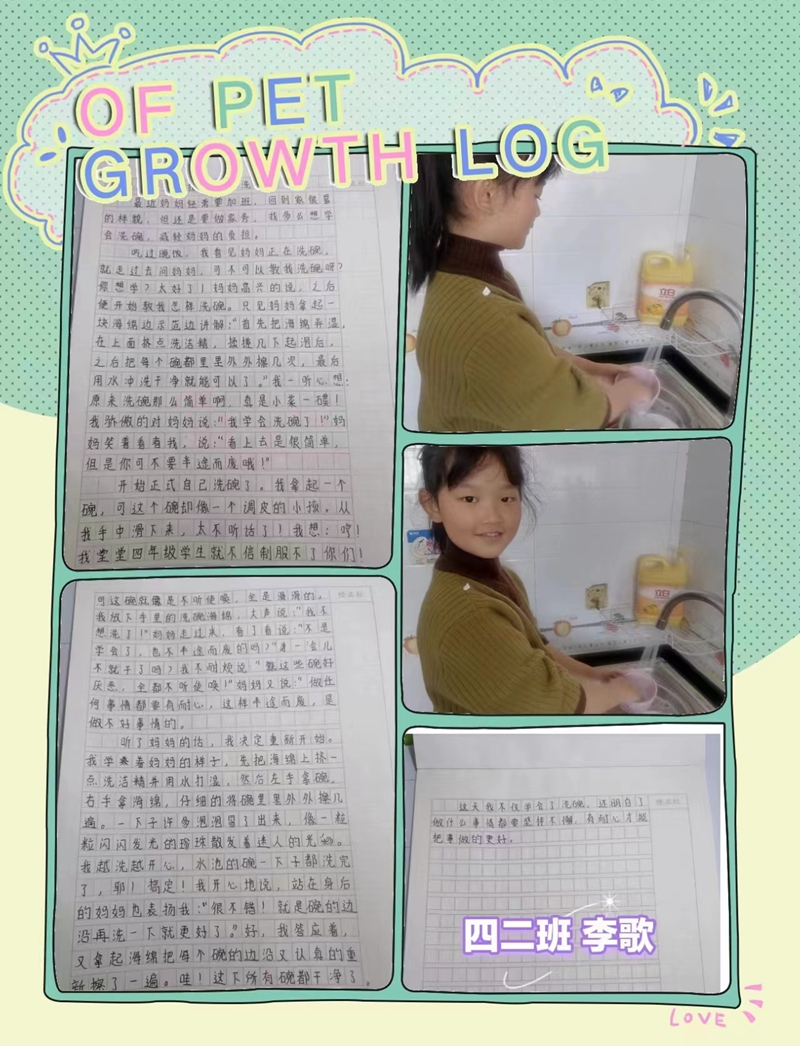 OF PET
GROWTH LOG
最近妈妈经常要加班,回到家很累
的样貌,但还是要做家务,我多么想学
会洗碗,减轻妈妈的负担。
吃过晚饭,我看见妈妈正在洗碗,
就走过去问妈妈,可不可以教我洗碗呀?
你想学?太好了!妈妈高兴的说,之后
便开始教我怎样洗碗。只见妈妈拿起一
块海绵边示范边讲解:"首先把海绵弄湿,
在上面挤点洗洁精,揉搓几下起泡后,
之后把每个碗都里里外外擦几次,最后
用水冲洗干净就能可以了。"我一听心想:
原来洗碗那么简单啊,真是小菜一碟!
我骄傲的对妈妈说:"我学会洗碗了!"妈
妈笑着看看我,说:"看上去是很简单,
但是你可不要半途而废哦!"
开始正式自己洗碗了。我拿起一个
碗,可这个碗却像一个调皮的小孩,从
我手中滑下来,太不听话了!我想:哼!
我堂堂四年级学生就不信制服不了你们!
可这碗就像是不听使唤,全是滑滑的。
我放下手里的洗碗海绵,大声说:"我不
想洗了!"妈妈走过来,看了看说:"不是
学会了,也不半途而废的吗?"这一会儿
不就干了吗?我不耐烦说"甄这些碗好
厌恶,全都不听使唤!"妈妈又说:"做任
何事情都要有耐心,这样半途而废,是
做不好事情的。
听了妈妈的话,我决定重新开始。
我学着妈妈的样子,先把海绵上挤一
点洗洁精并用水打湿,然后左手拿碗,
右手拿海绵,仔细的将碗里里外外擦几
遍。一下子许多泡泡冒了出来,像一粒
粒闪闪发光的珍珠散发着迷人的光
我越洗越开心,水池的碗一下子都洗完
了,耶!搞定!我开心地说,站在身后
的妈妈也表扬我:"很不错!就是碗的边
沿再洗一下就更好了。"好,我答应着,
又拿起海绵把每个碗的边沿又认真的重
新擦了一遍。哇!这下所有碗都干净了。
立白
立白
这天我不仅学会了洗碗,还明白了
做什么事情都要坚持不懈,有耐心才能
把事做的更好。
四二班 李歌
LOVE